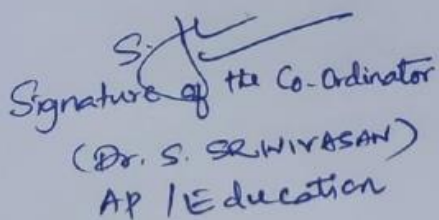 S.
Signature of the Co-Ordinator
(Dr. S. SRINIVASAN)
AP / Education